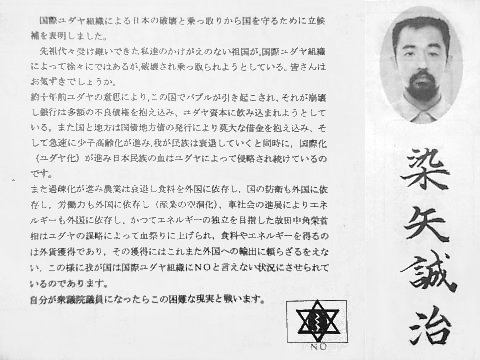 国際ユダヤ組織による日本の破壊と乗っ取りから国を守るために立候
補を表明しました。
先祖代々受け継いできた私達のかけがえのない祖国が、国際ユダヤ組織
によって徐々にではあるが、破壊され乗っ取られようとしている。皆さんは
お気ずきでしょうか。
約十年前ユダヤの意思により、この国でバブルが引き起こされ、それが崩壊
し銀行は多額の不良債権を抱え込み、ユダヤ資本に飲み込まれようとして
いる。また国と地方は国債地方債の発行により莫大な借金を抱え込み、そ
して急速に少子高齢化が進み、我が民族は衰退していくと同時に、国際化
（ユダヤ化）が進み日本民族の血はユダヤによって侵略され続けているの
です。
また過疎化が進み農業は衰退し食料を外国に依存し、国の防衛も外国に依
存し、労働力も外国に依存し（産業の空洞化）、車社会の進展によりエネル
ギーも外国に依存し、かつてエネルギーの独立を目指した故田中角栄首
相はユダヤの謀略によって血祭りに上げられ、食料やエネルギーを得るの
は外貨獲得であり、その獲得にはこれまた外国への輸出に頼らざるをえな
い。この様に我が国は国際ユダヤ組織にＮＯと言えない状況にさせられて
いるのであります。
自分が衆議院議員になったらこの困難な現実と戦います。
NO
染矢誠治